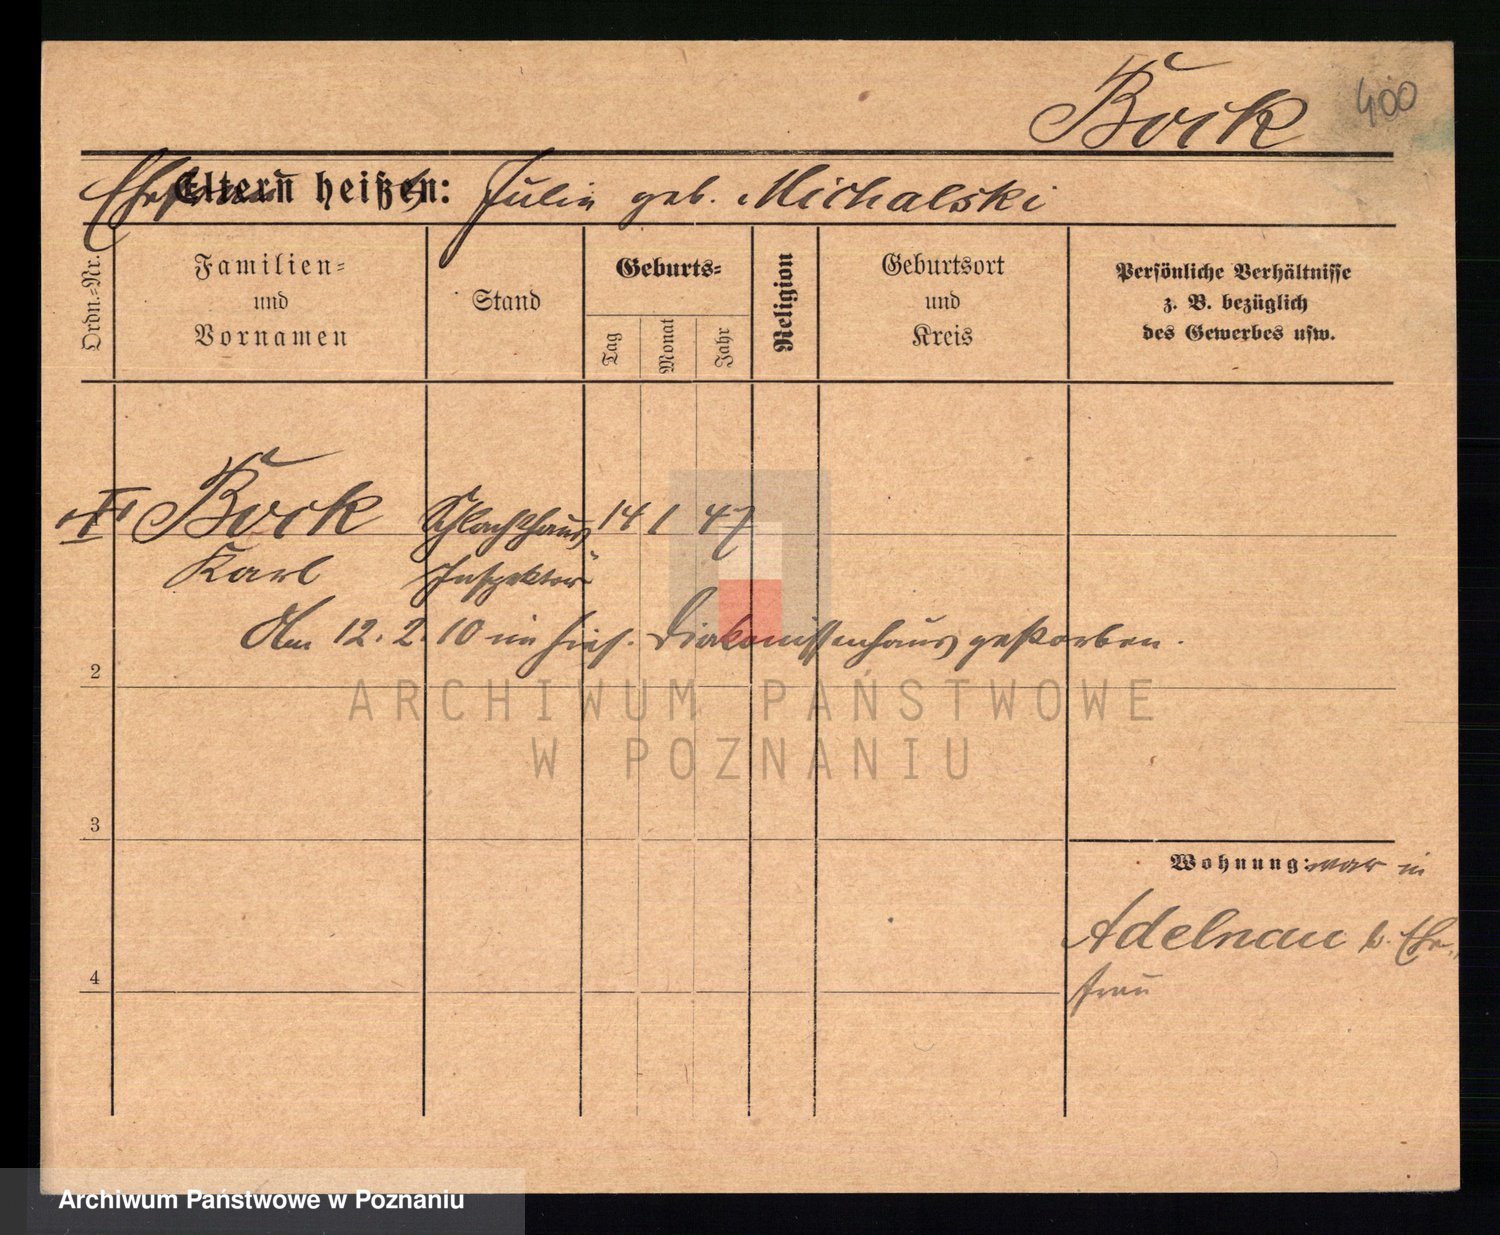 Bock 400
Ehefrau Eltern heißen: Julie geb. Michalski
Ordn.-Nr.
Familien-
und
Vornamen
Stand
Geburts-
Tag
Monat
Jahr
Religion
Geburtsort
und
Kreis
Persönliche Verhältnisse
z. B. bezüglich
des Gewerbes usw.
Bock Schlachthaus 14 1 47
Karl Inspektor
Am 12. 2. 10 im hies. Diakonissenhaus gestorben.
2
ARCHIWUM PAŃSTWOWE
W POZNANIU
3
Wohnung: war in
Adelnau b. Ehe-
frau
4
Archiwum Państwowe w Poznaniu